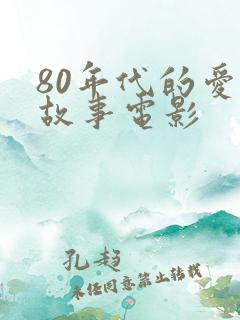 80年代的爱
故事电影
孔趋
未任同意禁止转载